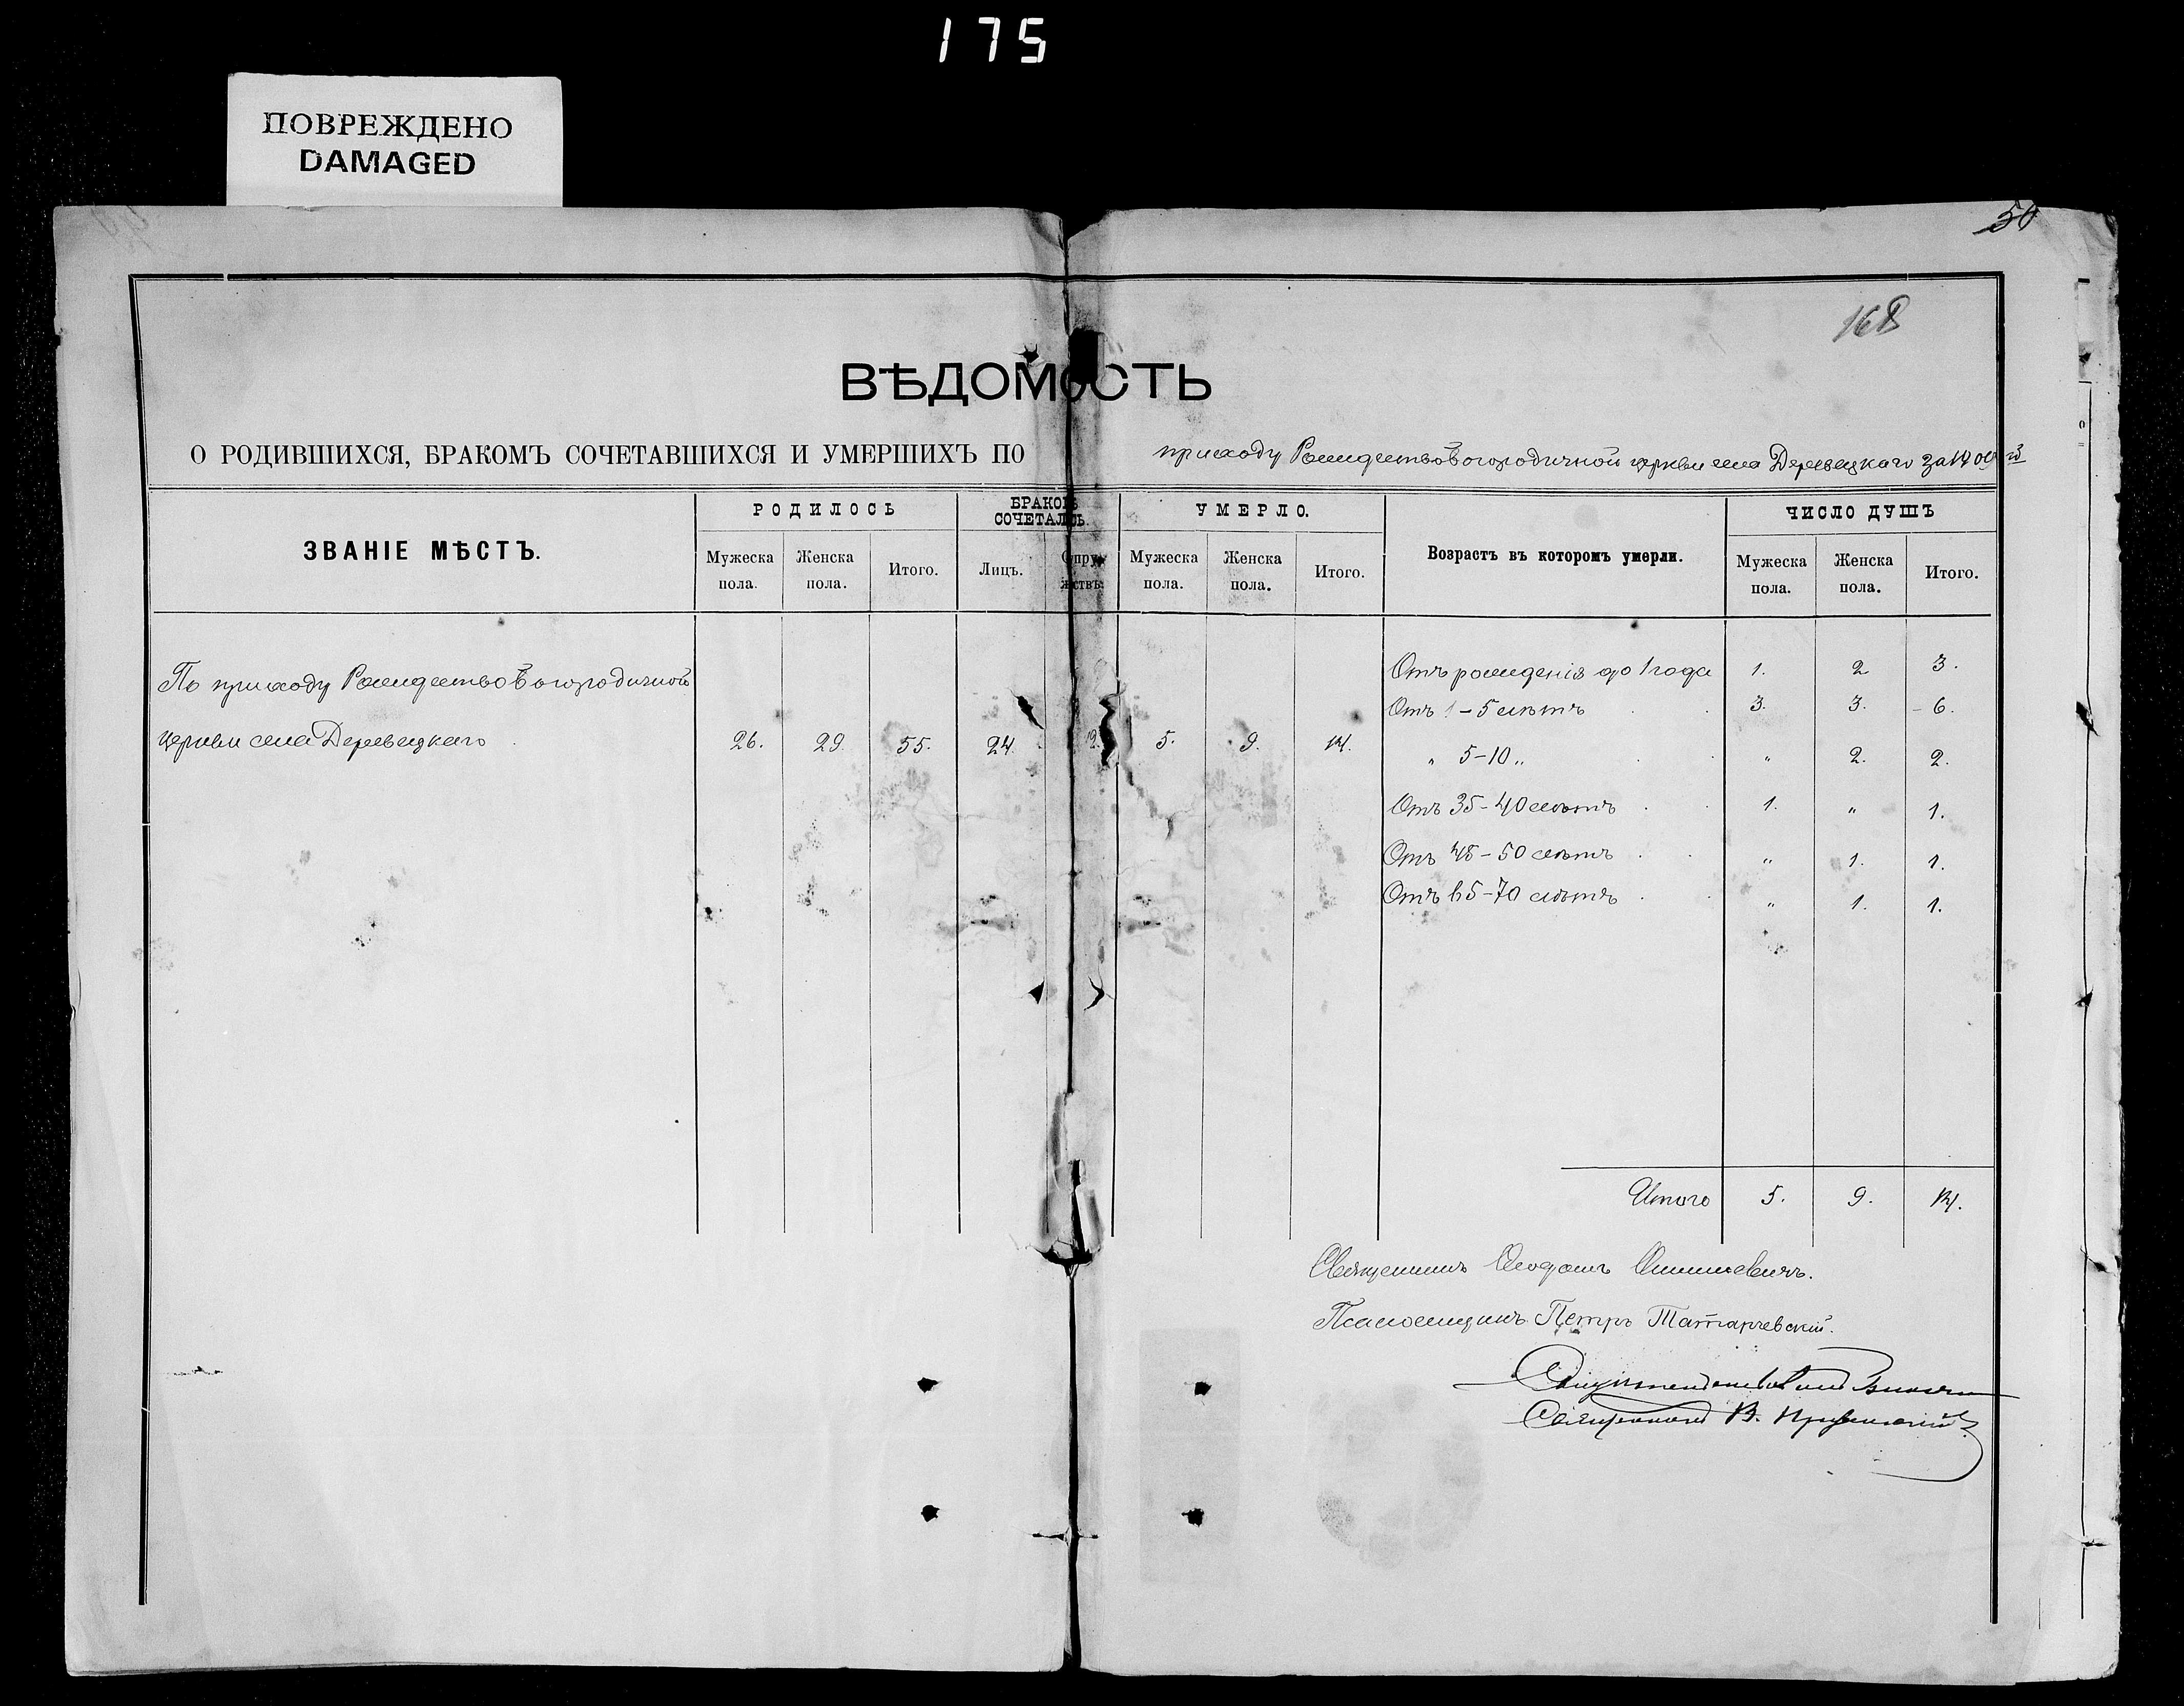 175
ПОВРЕЖДЕНО
DAMAGED
50
168
ВѢДОМОСТЬ
О РОДИВШИХСЯ, БРАКОМЪ СОЧЕТАВШИХСЯ И УМЕРШИХЪ ПО приходу Рождествобогородичной церкви села Деревецкаго за
ЗВАНІЕ МѢСТЪ. РОДИЛОСЬ БРАКОМЪ СОЧЕТАЛОСЬ. УМЕРЛО. Возрастъ въ которомъ умерли. ЧИСЛО ДУШЪ
Мужеска пола. Женска пола. Итого. Лицъ. Супружествъ. Мужеска пола. Женска пола. Итого. Мужеска пола. Женска пола. Итого.
По приходу Рождествобогородичной Отъ рожденія до 1 года 1. 2 3.
Отъ 1-5 лѣтъ 3. 3. 6.
церкви села Деревецкаго 26. 29. 55. 24. 12. 5. 9. 14.
„ 5-10 „ „ 2. 2.
Отъ 35-40 лѣтъ 1. „ 1.
Отъ 48-50 лѣтъ „ 1. 1.
Отъ 65-70 лѣтъ „ 1. 1.
Итого 5. 9. 14.
Священникъ
Псаломщикъ Петръ Татарчевскій.
Священникъ В.